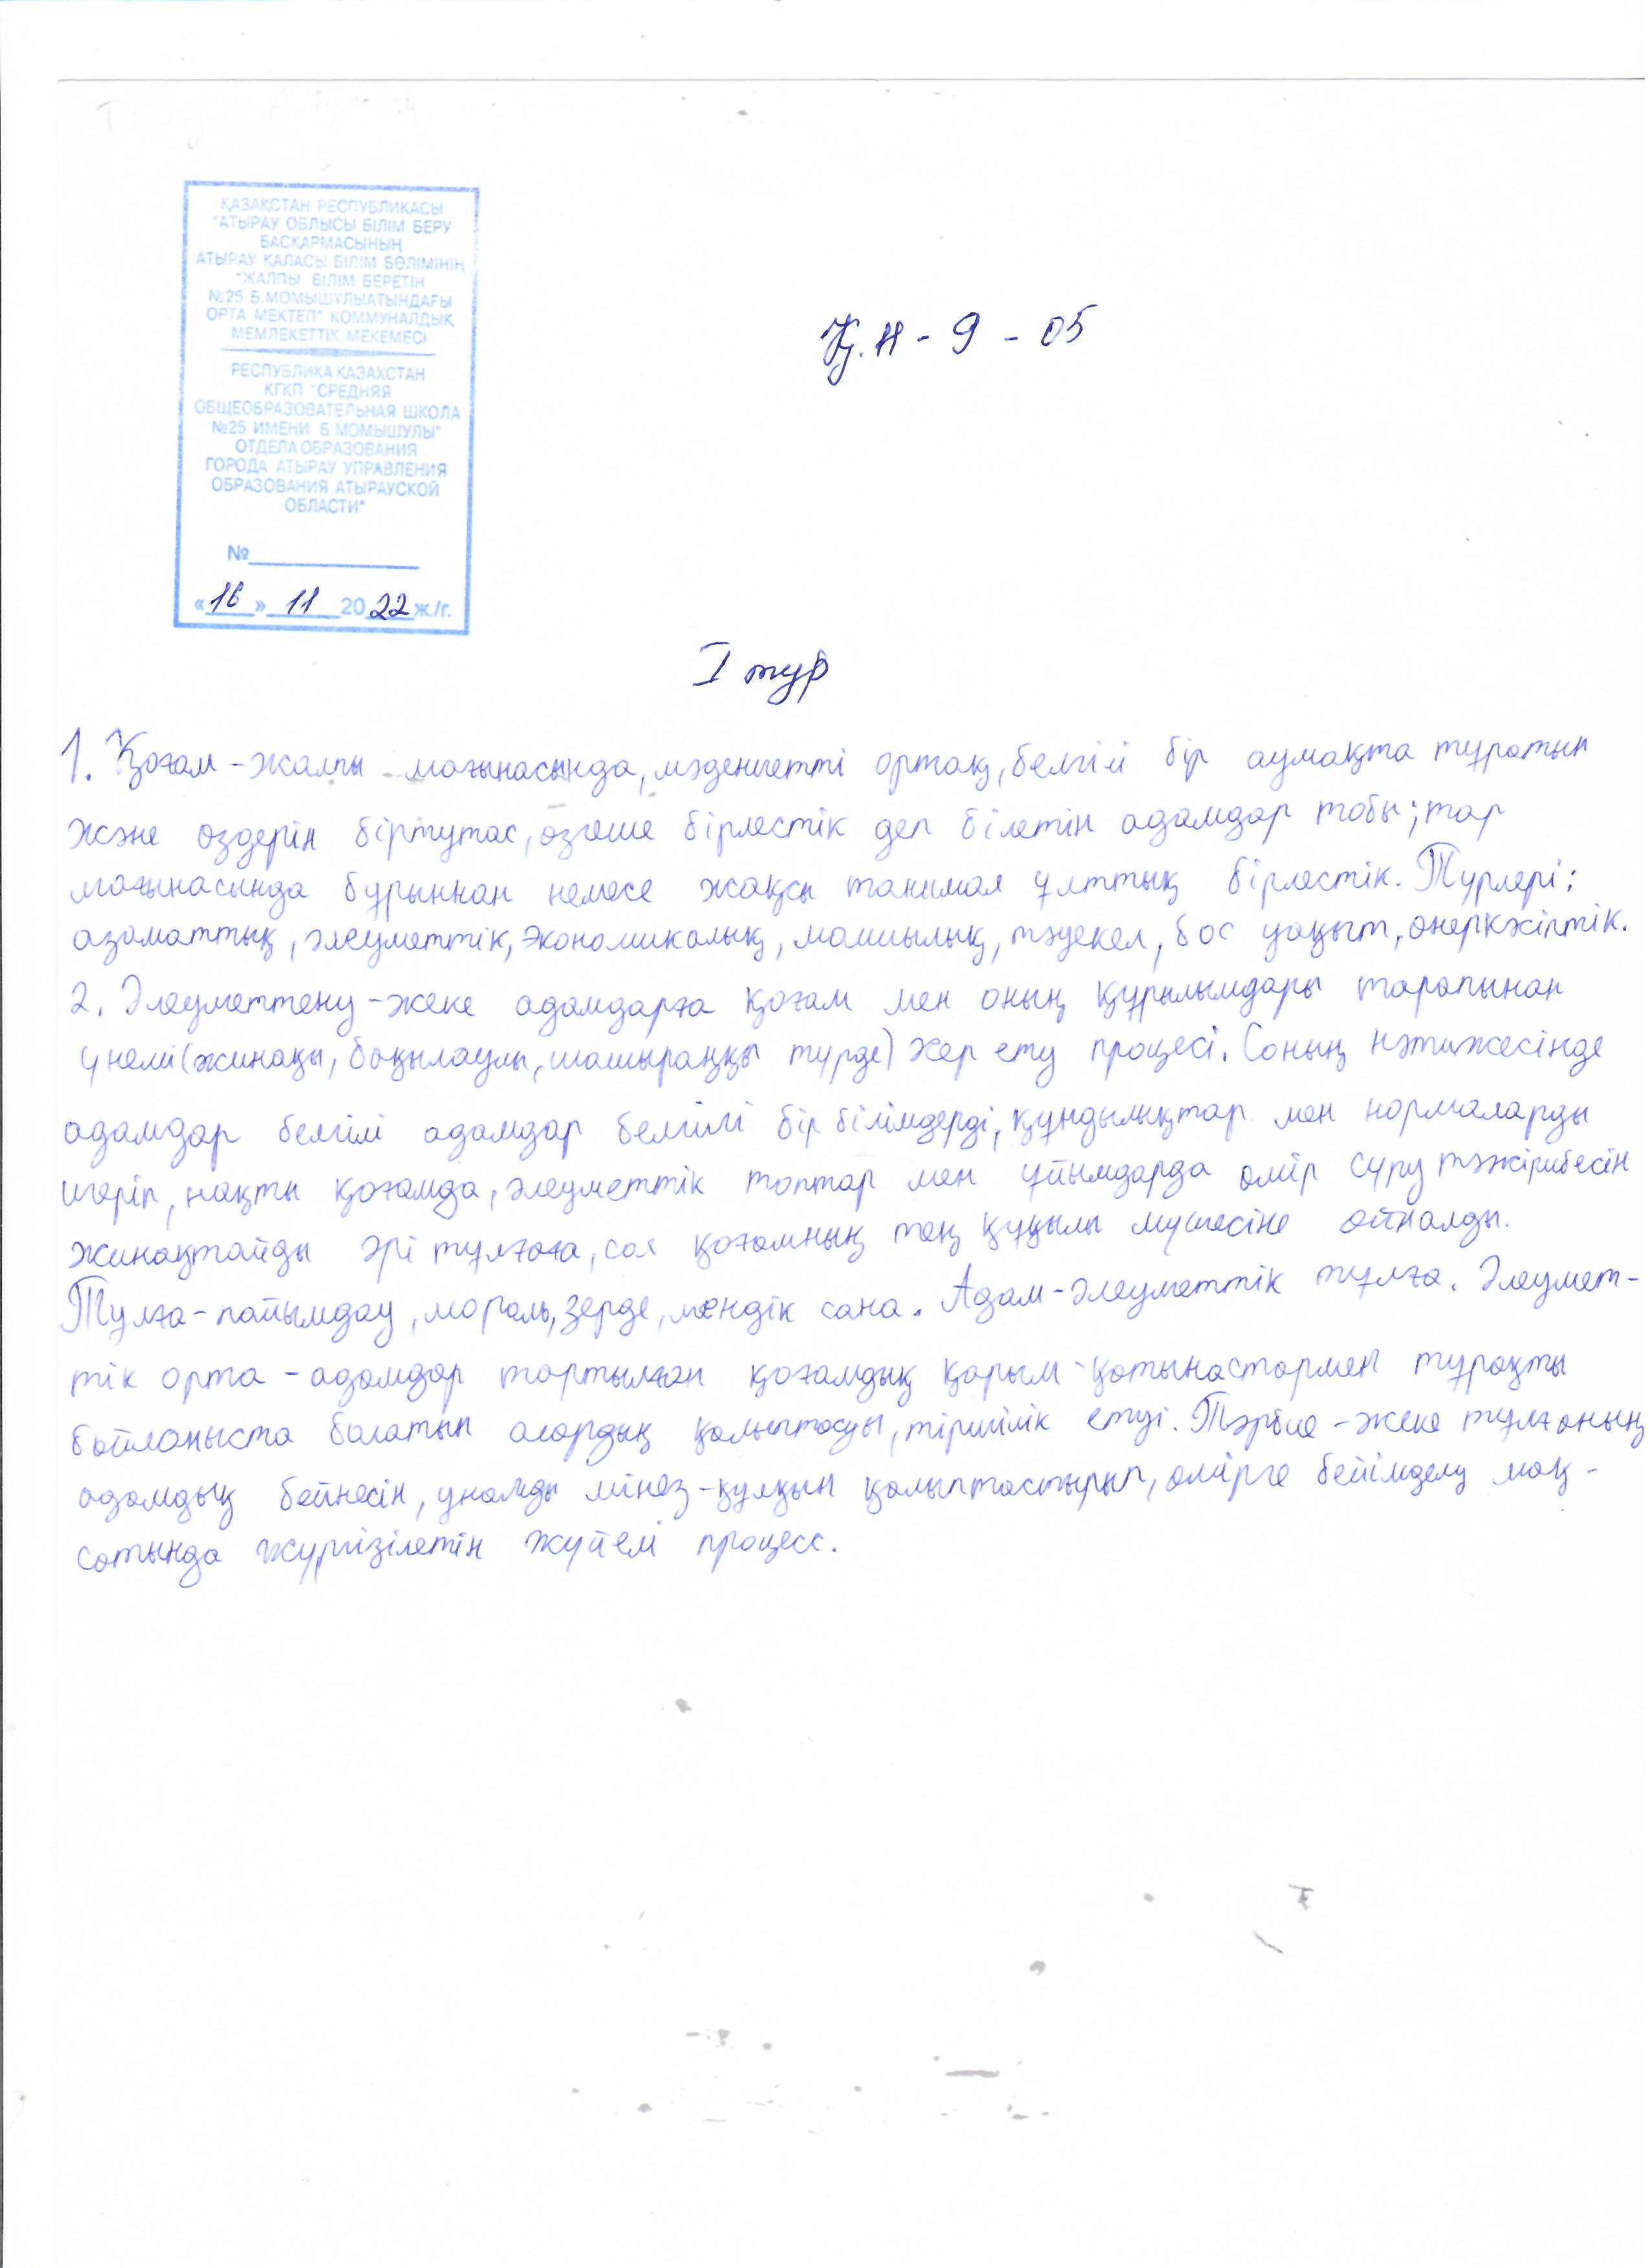 ҚАЗАҚСТАН РЕСПУБЛИКАСЫ
"АТЫРАУ ОБЛЫСЫ БІЛІМ БЕРУ
БАСҚАРМАСЫНЫҢ
АТЫРАУ ҚАЛАСЫ БІЛІМ БӨЛІМІНІҢ
"ЖАЛПЫ БІЛІМ БЕРЕТІН
№25 Б.МОМЫШҰЛЫАТЫНДАҒЫ
ОРТА МЕКТЕП" КОММУНАЛДЫҚ
МЕМЛЕКЕТТІК МЕКЕМЕСІ
РЕСПУБЛИКА КАЗАХСТАН
КГКП "СРЕДНЯЯ
ОБЩЕОБРАЗОВАТЕЛЬНАЯ ШКОЛА
№25 ИМЕНИ Б.МОМЫШУЛЫ"
ОТДЕЛА ОБРАЗОВАНИЯ
ГОРОДА АТЫРАУ УПРАВЛЕНИЯ
ОБРАЗОВАНИЯ АТЫРАУСКОЙ
ОБЛАСТИ"
№
«16» 11 2022 ж./г.
Қ.Н - 9 - 05
I тур
1. Қоғам - жалпы мағынасында, мәдениетті ортақ, белгілі бір аумақта тұратын
және өздерін біртұтас, өзгеше бірлестік деп білетін адамдар тобы; тар
мағынасында бұрыннан немесе жақсы танымал ұлттық бірлестік. Түрлері:
азаматтық, әлеуметтік, экономикалық, машиылық, тәуекел, бос уақыт, өнеркәсіптік.
2. Әлеуметтену - жеке адамдарға қоғам мен оның құрылымдары тарапынан
үнемі (жинақы, бақылаулы, шашыраңқы түрде) әсер ету процесі. Соның нәтижесінде
адамдар белгілі адамдар белгілі бір білімдерді, құндылықтар мен нормаларды
игеріп, нақты қоғамда, әлеуметтік топтар мен ұйымдарда өмір сүру тәжірибесін
жинақтайды әрі тұлғаға, сол қоғамның тең құқылы мүшесіне айналды.
Тұлға - пайымдау, мораль, зерде, мендік сана. Адам - әлеуметтік тұлға. Әлеумет-
тік орта - адамдар тартылған қоғамдық қарым-қатынастармен тұрақты
байланыста болатын олардың қалыптасуы, тіршілік етуі. Тәрбие - жеке тұлғаның
адамдық бейнесін, ұнамды мінез-құлқын қалыптастырып, өмірге бейімделу мақ-
сатында жүргізілетін жүйелі процесс.